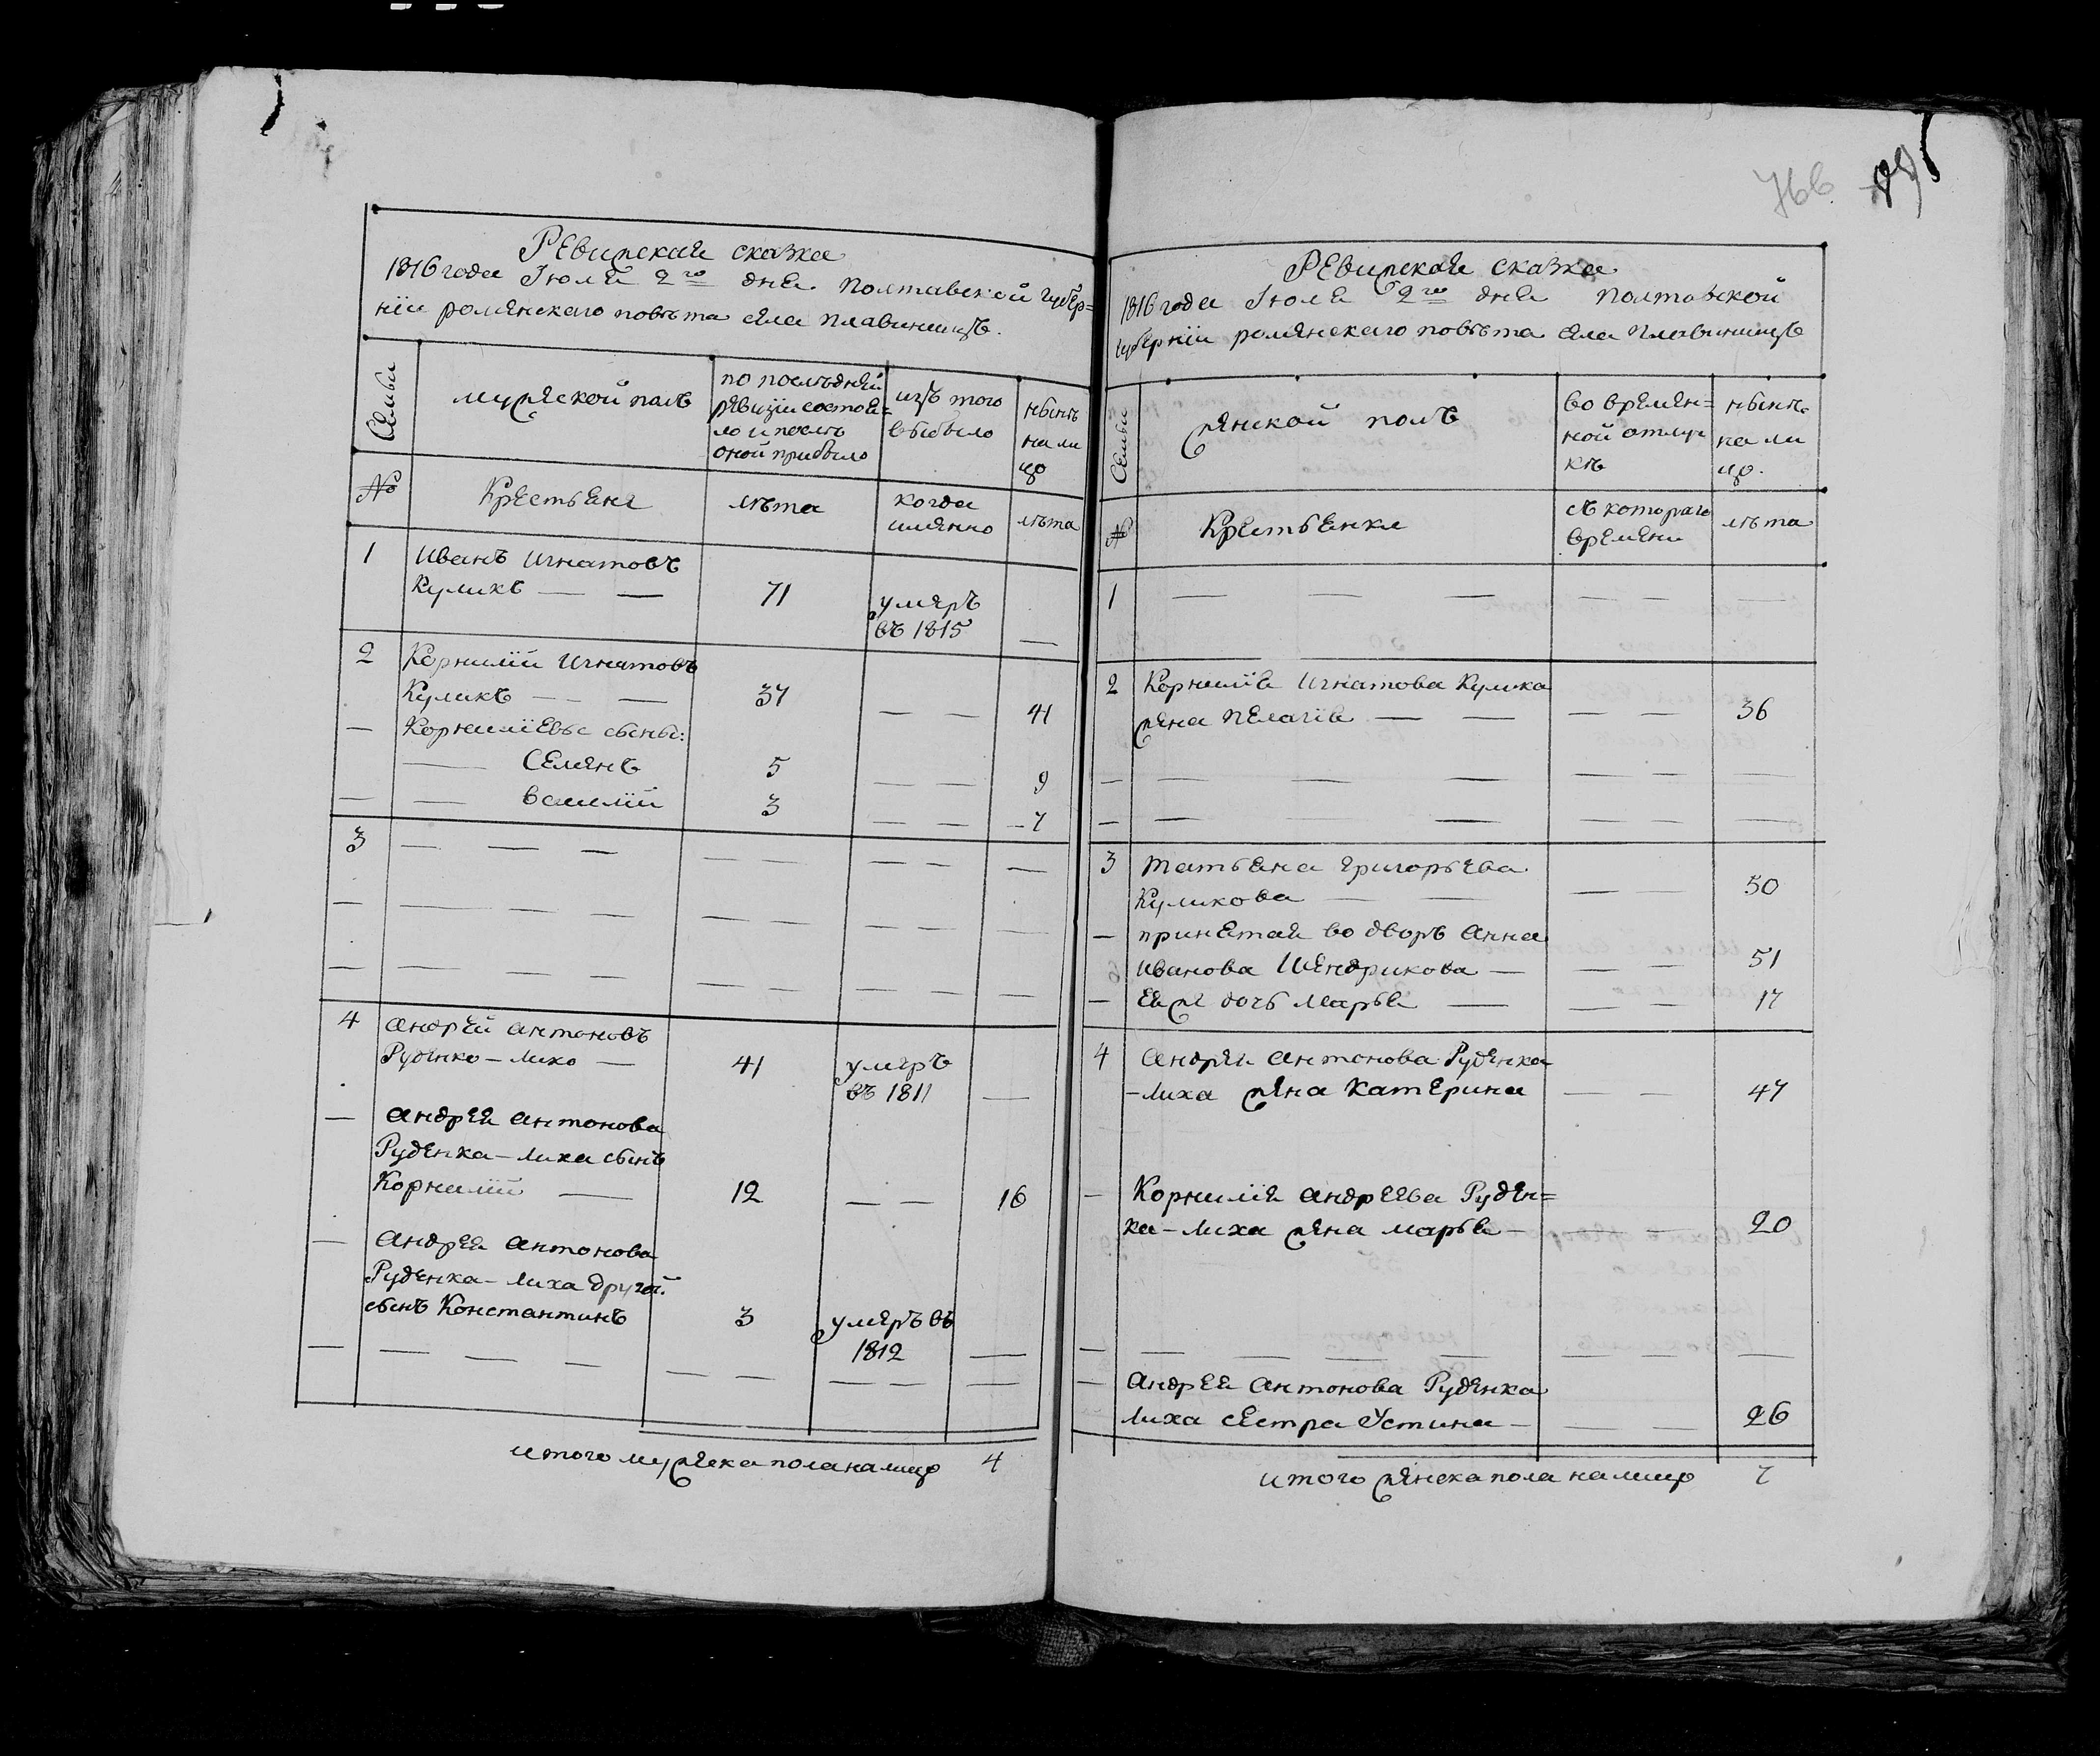 Ревизская сказка
1816 года Іюля 2го дня Полтавской губер=
ніи роменскаго повѣта села Плавинищъ.
Семьи
мужеской полъ
по послѣдней
ревизіи состоя=
ло и послѣ
оной прибыло
изъ того
выбыло
нынѣ
на ли
цо
№
Крестьяне
лѣта
когда
именно
лѣта
1
Иванъ Игнатовъ
Куликъ — —
71
умеръ
въ 1815
—
2
Корнилій Игнатовъ
Куликъ — —
37
— —
41
— Корниліевы сыны:
— Семенъ
5
— —
9
— — Василій
3
— —
— 7
3
— — —
— —
— —
—
— — — — —
— —
— —
—
— — — —
— —
— —
—
4
Андрей Антоновъ
Руденко – Лихо —
41
умеръ
въ 1811
—
— Андрея Антонова
Руденка – Лиха сынъ
Корнилій —
12
— —
16
— Андрея Антонова
Руденка – Лиха другой
сынъ Константинъ
3
умеръ въ
1812
—
— — — —
— —
— —
—
итого мужеска пола налицо 4
766
Ревизская сказка
1816 года Іюля 2го дня Полтавской
губерніи роменскаго повѣта села Плавинищъ
Семьи
женской полъ
во времен=
ной отлуч
кѣ
нынѣ
на ли
цо.
№
Крестьянки
съ котораго
времени
лѣта
1
— — —
— —
—
2
Корнилія Игнатова Кулика
жена Пелагія — —
— —
36
— — — —
— —
—
— — —
— —
—
3
Татьяна Григорьева
Куликова — —
— —
50
— принятая во дворъ Анна
Иванова Шендрикова —
— —
51
— ея же дочь Марья —
— —
17
4
Андрея Антонова Руденка
– Лиха жена Катерина
— —
47
— Корнилія Андреева Руден=
ка – Лиха жена Марья —
— —
20
— — — — —
— —
—
— Андрея Антонова Руденка
Лиха сестра Устина —
— —
26
итого женска пола налицо 7